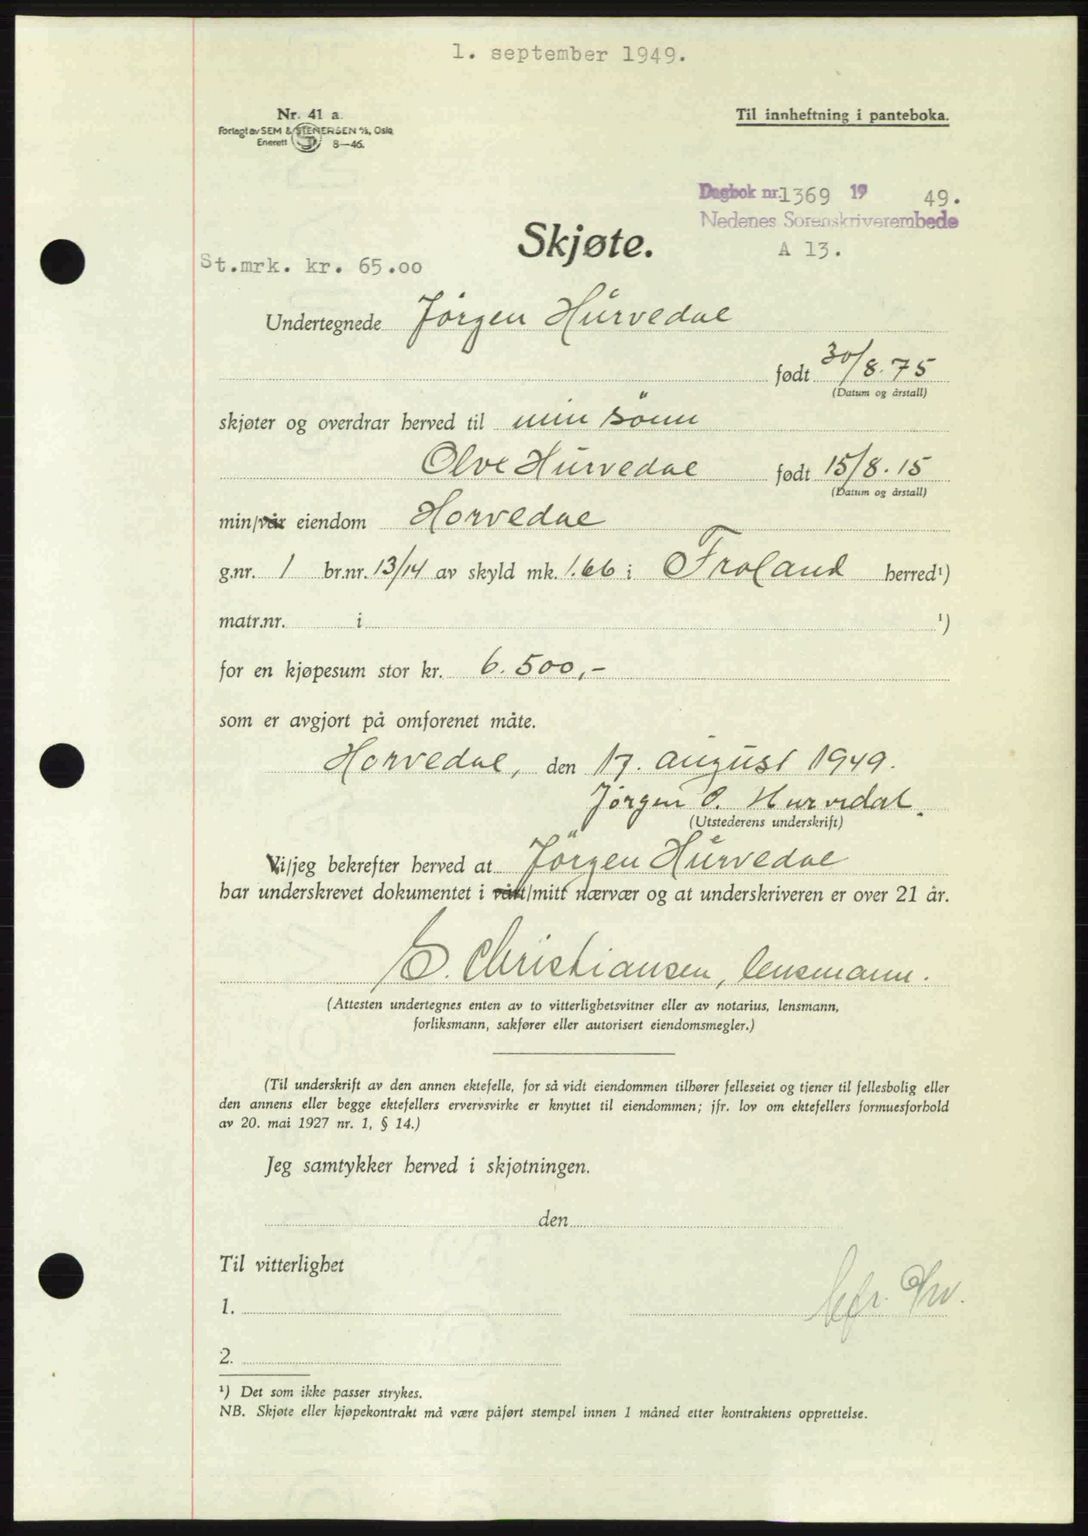 1. september 1949.
Nr. 41 a.
Forlagt av SEM & STENERSEN A/S, Oslo
Enerett 8—46.
Til innheftning i panteboka.
Dagbok nr. 1369 19 49.
Nedenes Sorenskriverembede
A 13.
Skjøte.
St.mrk. kr. 65.00
Undertegnede Jørgen Hurvedal
født 30/8.75
(Datum og årstall)
skjøter og overdrar herved til min sønn
Olve Hurvedal født 15/8.15
(Datum og årstall)
min/vår eiendom Horvedal
g.nr. 1 br.nr. 13/14 av skyld mk. 1.66 i Froland herred¹)
matr.nr. i ¹)
for en kjøpesum stor kr. 6.500,-
som er avgjort på omforenet måte.
Horvedal, den 17. august 1949.
Jørgen O. Hurvedal.
(Utstederens underskrift)
Vi/jeg bekrefter herved at Jörgen Hurvedal
har underskrevet dokumentet i vårt/mitt nærvær og at underskriveren er over 21 år.
C. Christiansen, lensmann.
(Attesten undertegnes enten av to vitterlighetsvitner eller av notarius, lensmann,
forliksmann, sakfører eller autorisert eiendomsmegler.)
(Til underskrift av den annen ektefelle, for så vidt eiendommen tilhører felleseiet og tjener til fellesbolig eller
den annens eller begge ektefellers ervervsvirke er knyttet til eiendommen; jfr. lov om ektefellers formuesforhold
av 20. mai 1927 nr. 1, § 14.)
Jeg samtykker herved i skjøtningen.
den
Til vitterlighet
1.
2.
¹) Det som ikke passer strykes.
NB. Skjøte eller kjøpekontrakt må være påført stempel innen 1 måned etter kontraktens opprettelse.